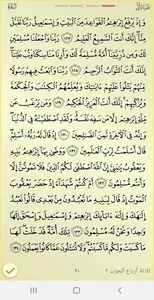 البقرة
وَإِذْ يَرْفَعُ إِبْرَٰهِـۧمُ ٱلْقَوَاعِدَ مِنَ ٱلْبَيْتِ وَإِسْمَٰعِيلُ رَبَّنَا تَقَبَّلْ
مِنَّآ إِنَّكَ أَنتَ ٱلسَّمِيعُ ٱلْعَلِيمُ ١٢٧ رَبَّنَا وَٱجْعَلْنَا مُسْلِمَيْنِ لَكَ
وَمِن ذُرِّيَّتِنَآ أُمَّةً مُّسْلِمَةً لَّكَ وَأَرِنَا مَنَاسِكَنَا وَتُبْ عَلَيْنَآ
إِنَّكَ أَنتَ ٱلتَّوَّابُ ٱلرَّحِيمُ ١٢٨ رَبَّنَا وَٱبْعَثْ فِيهِمْ رَسُولًا
مِّنْهُمْ يَتْلُوا۟ عَلَيْهِمْ ءَايَٰتِكَ وَيُعَلِّمُهُمُ ٱلْكِتَٰبَ وَٱلْحِكْمَةَ
وَيُزَكِّيهِمْ إِنَّكَ أَنتَ ٱلْعَزِيزُ ٱلْحَكِيمُ ١٢٩ وَمَن يَرْغَبُ عَن
مِّلَّةِ إِبْرَٰهِـۧمَ إِلَّا مَن سَفِهَ نَفْسَهُۥ وَلَقَدِ ٱصْطَفَيْنَٰهُ
فِى ٱلدُّنْيَا وَإِنَّهُۥ فِى ٱلْـَٔاخِرَةِ لَمِنَ ٱلصَّٰلِحِينَ ١٣٠ إِذْ قَالَ لَهُۥ
رَبُّهُۥٓ أَسْلِمْ قَالَ أَسْلَمْتُ لِرَبِّ ٱلْعَٰلَمِينَ ١٣١ وَوَصَّىٰ بِهَآ إِبْرَٰهِـۧمُ
بَنِيهِ وَيَعْقُوبُ يَٰبَنِىَّ إِنَّ ٱللَّهَ ٱصْطَفَىٰ لَكُمُ ٱلدِّينَ فَلَا تَمُوتُنَّ
إِلَّا وَأَنتُم مُّسْلِمُونَ ١٣٢ أَمْ كُنتُمْ شُهَدَآءَ إِذْ حَضَرَ يَعْقُوبَ
ٱلْمَوْتُ إِذْ قَالَ لِبَنِيهِ مَا تَعْبُدُونَ مِنۢ بَعْدِى قَالُوا۟ نَعْبُدُ
إِلَٰهَكَ وَإِلَٰهَ ءَابَآئِكَ إِبْرَٰهِـۧمَ وَإِسْمَٰعِيلَ وَإِسْحَٰقَ إِلَٰهًا
وَٰحِدًا وَنَحْنُ لَهُۥ مُسْلِمُونَ ١٣٣ تِلْكَ أُمَّةٌ قَدْ خَلَتْ لَهَا
مَا كَسَبَتْ وَلَكُم مَّا كَسَبْتُمْ وَلَا تُسْـَٔلُونَ عَمَّا كَانُوا۟ يَعْمَلُونَ ١٣٤
ثلاثة أرباع الحزب ٢
٢٠